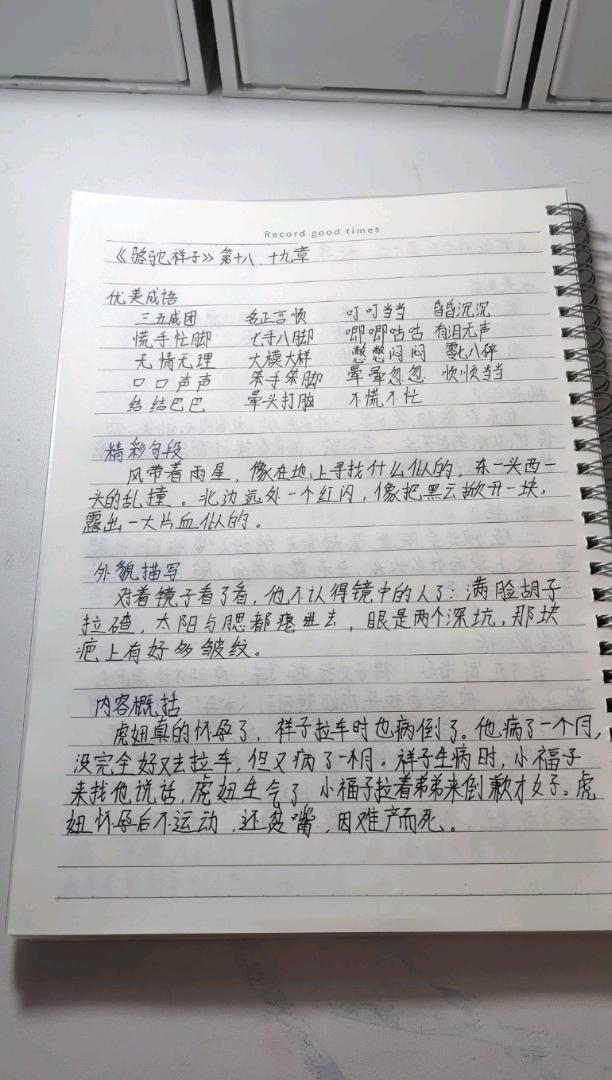 Record good times
《骆驼祥子》第十八 十九章
优美成语
三五成团 名正言顺 叮叮当当 昏昏沉沉
慌手忙脚 七手八脚 唧唧咕咕 有泪无声
无情无理 大模大样 憋憋闷闷 零七八碎
口口声声 笨手笨脚 晕晕忽忽 顺顺当当
结结巴巴 晕头打脑 不慌不忙
精彩句段
风带着雨星，像在地上寻找什么似的，东一头西一
头的乱撞。北边远处一个红闪，像把黑云掀开一块，
露出一大片血似的。
外貌描写
对着镜子看了看，他不认得镜中的人了：满脸胡子
拉碴，太阳与腮都瘪进去，眼是两个深坑，那块
疤上有好多皱纹。
内容概括
虎妞真的怀孕了，祥子拉车时也病倒了。他病了一个月，
没完全好又去拉车，但又病了一个月。祥子生病时，小福子
来找他说话，虎妞生气了，小福子拉着弟弟来倒歉才好。虎
妞怀孕后不运动，还贪嘴，因难产而死。